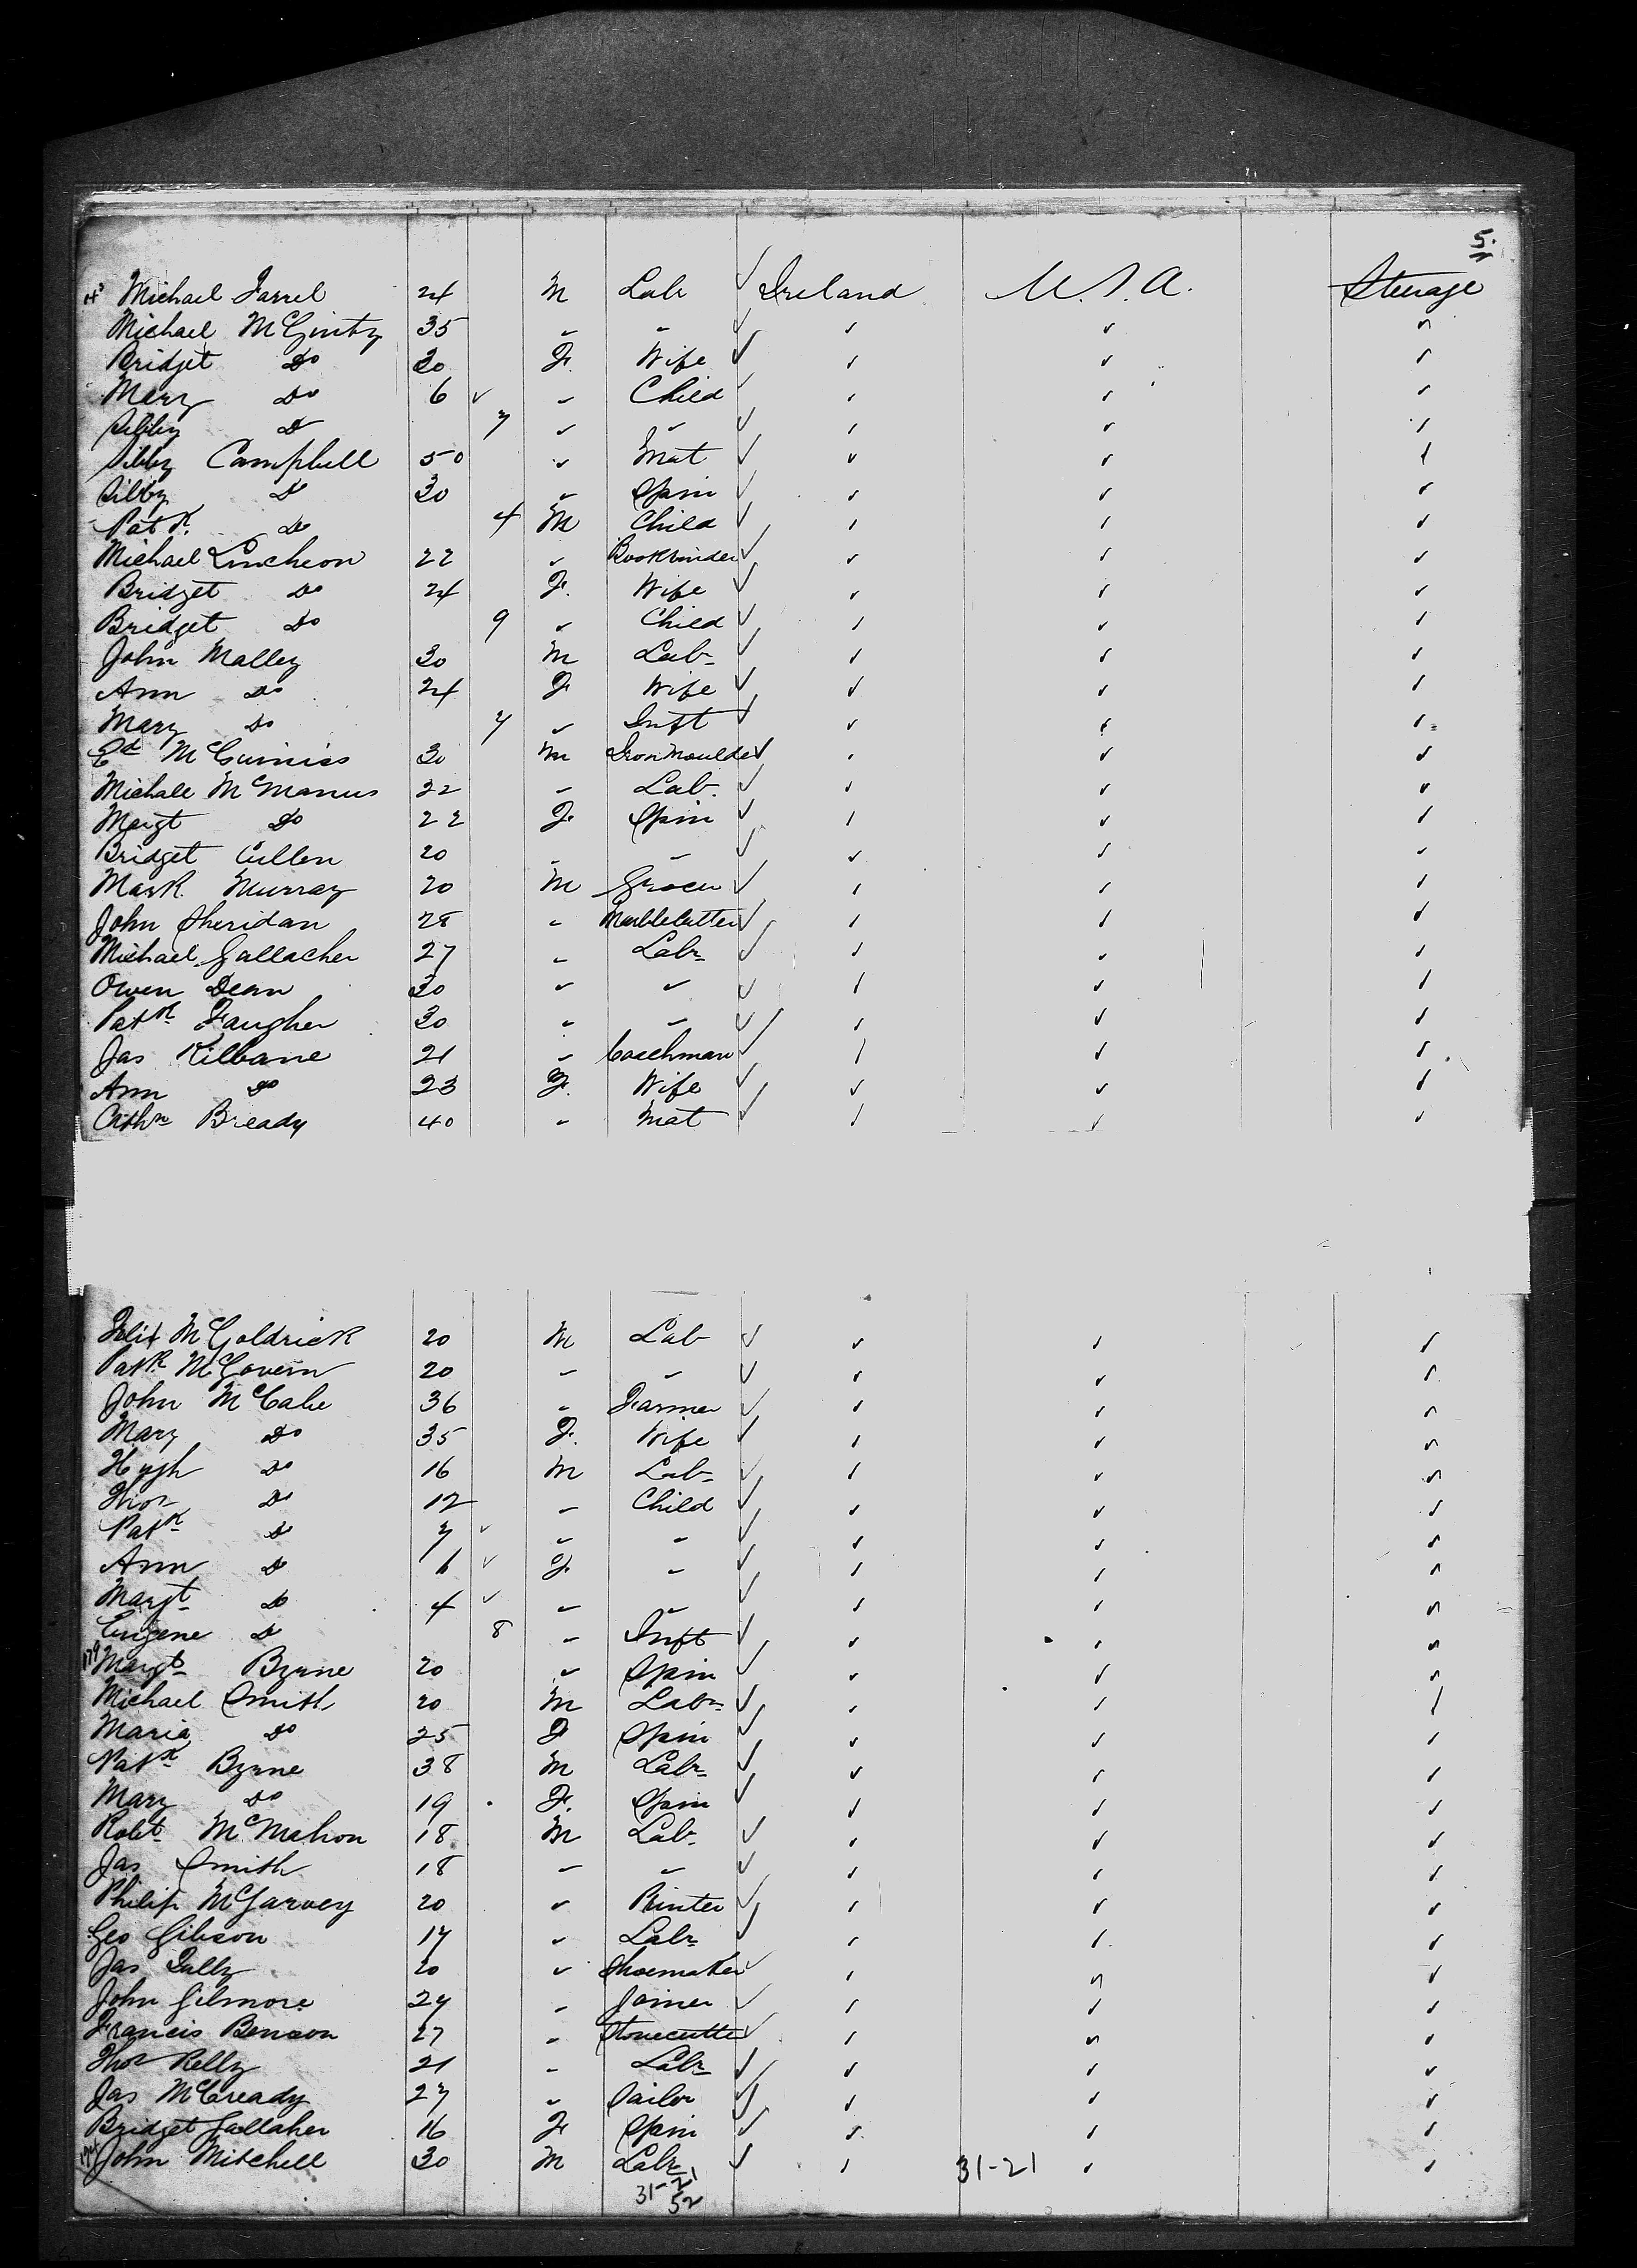 5.
Michael Farrel 24 M Lab Ireland U.S.A. Steerage
Michael McGinty 35 " "
Bridget Do 30 F. Wife
Mary Do 6 " Child
Sibby Do 7 " "
Sibby Campbell 50 " Mat
Sibby Do 30 " Spin
Patk. Do 4 M Child
Michael Luncheon 22 " Bookbinder
Bridget Do 24 F. Wife
Bridget Do 9 " Child
John Malley 30 M Lab
Ann Do 24 F Wife
Mary Do 7 " Inft
Ed McGuiniss 30 M Iron Moulder
Michale McManus 22 " Lab.
Margt Do 22 F. Spin
Bridget Cullen 20 " "
Mark Murray 20 M Grocer
John Sheridan 28 " Marblecutter
Michael Gallacher 27 " Labr
Owen Dean 30 " "
Patk Faugher 30 " "
Jas Kilbane 21 " Coachman
Ann Do 23 F. Wife
Cathn Bready 40 " Mat
Felix McGoldrick 20 M Lab
Patk McGovern 20 " "
John McCabe 36 " Farmer
Mary Do 35 F. Wife
Hugh Do 16 M Lab
Thos Do 12 " Child
Patk Do 7 " "
Ann Do 6 F. "
Margt Do 4 " "
Eugene Do 8 " Inft
Margt Byrne 20 " Spin
Michael Smith 20 M Labr
Maria Do 25 F Spin
Patk Byrne 38 M Labr
Mary Do 19 F. Spin
Robt McMahon 18 M Lab
Jas Smith 18 " "
Philip McGarvey 20 " Printer
Geo Gibson 17 " Labr
Jas Lally 20 " Shoemaker
John Gilmore 24 " Joiner
Francis Benson 27 " Stonecutter
Thos Kelly 21 " Labr
Jas McCready 27 " Sailor
Bridget Gallaher 16 F Spin
John Mitchell 30 M Labr 31-21
31-21
52